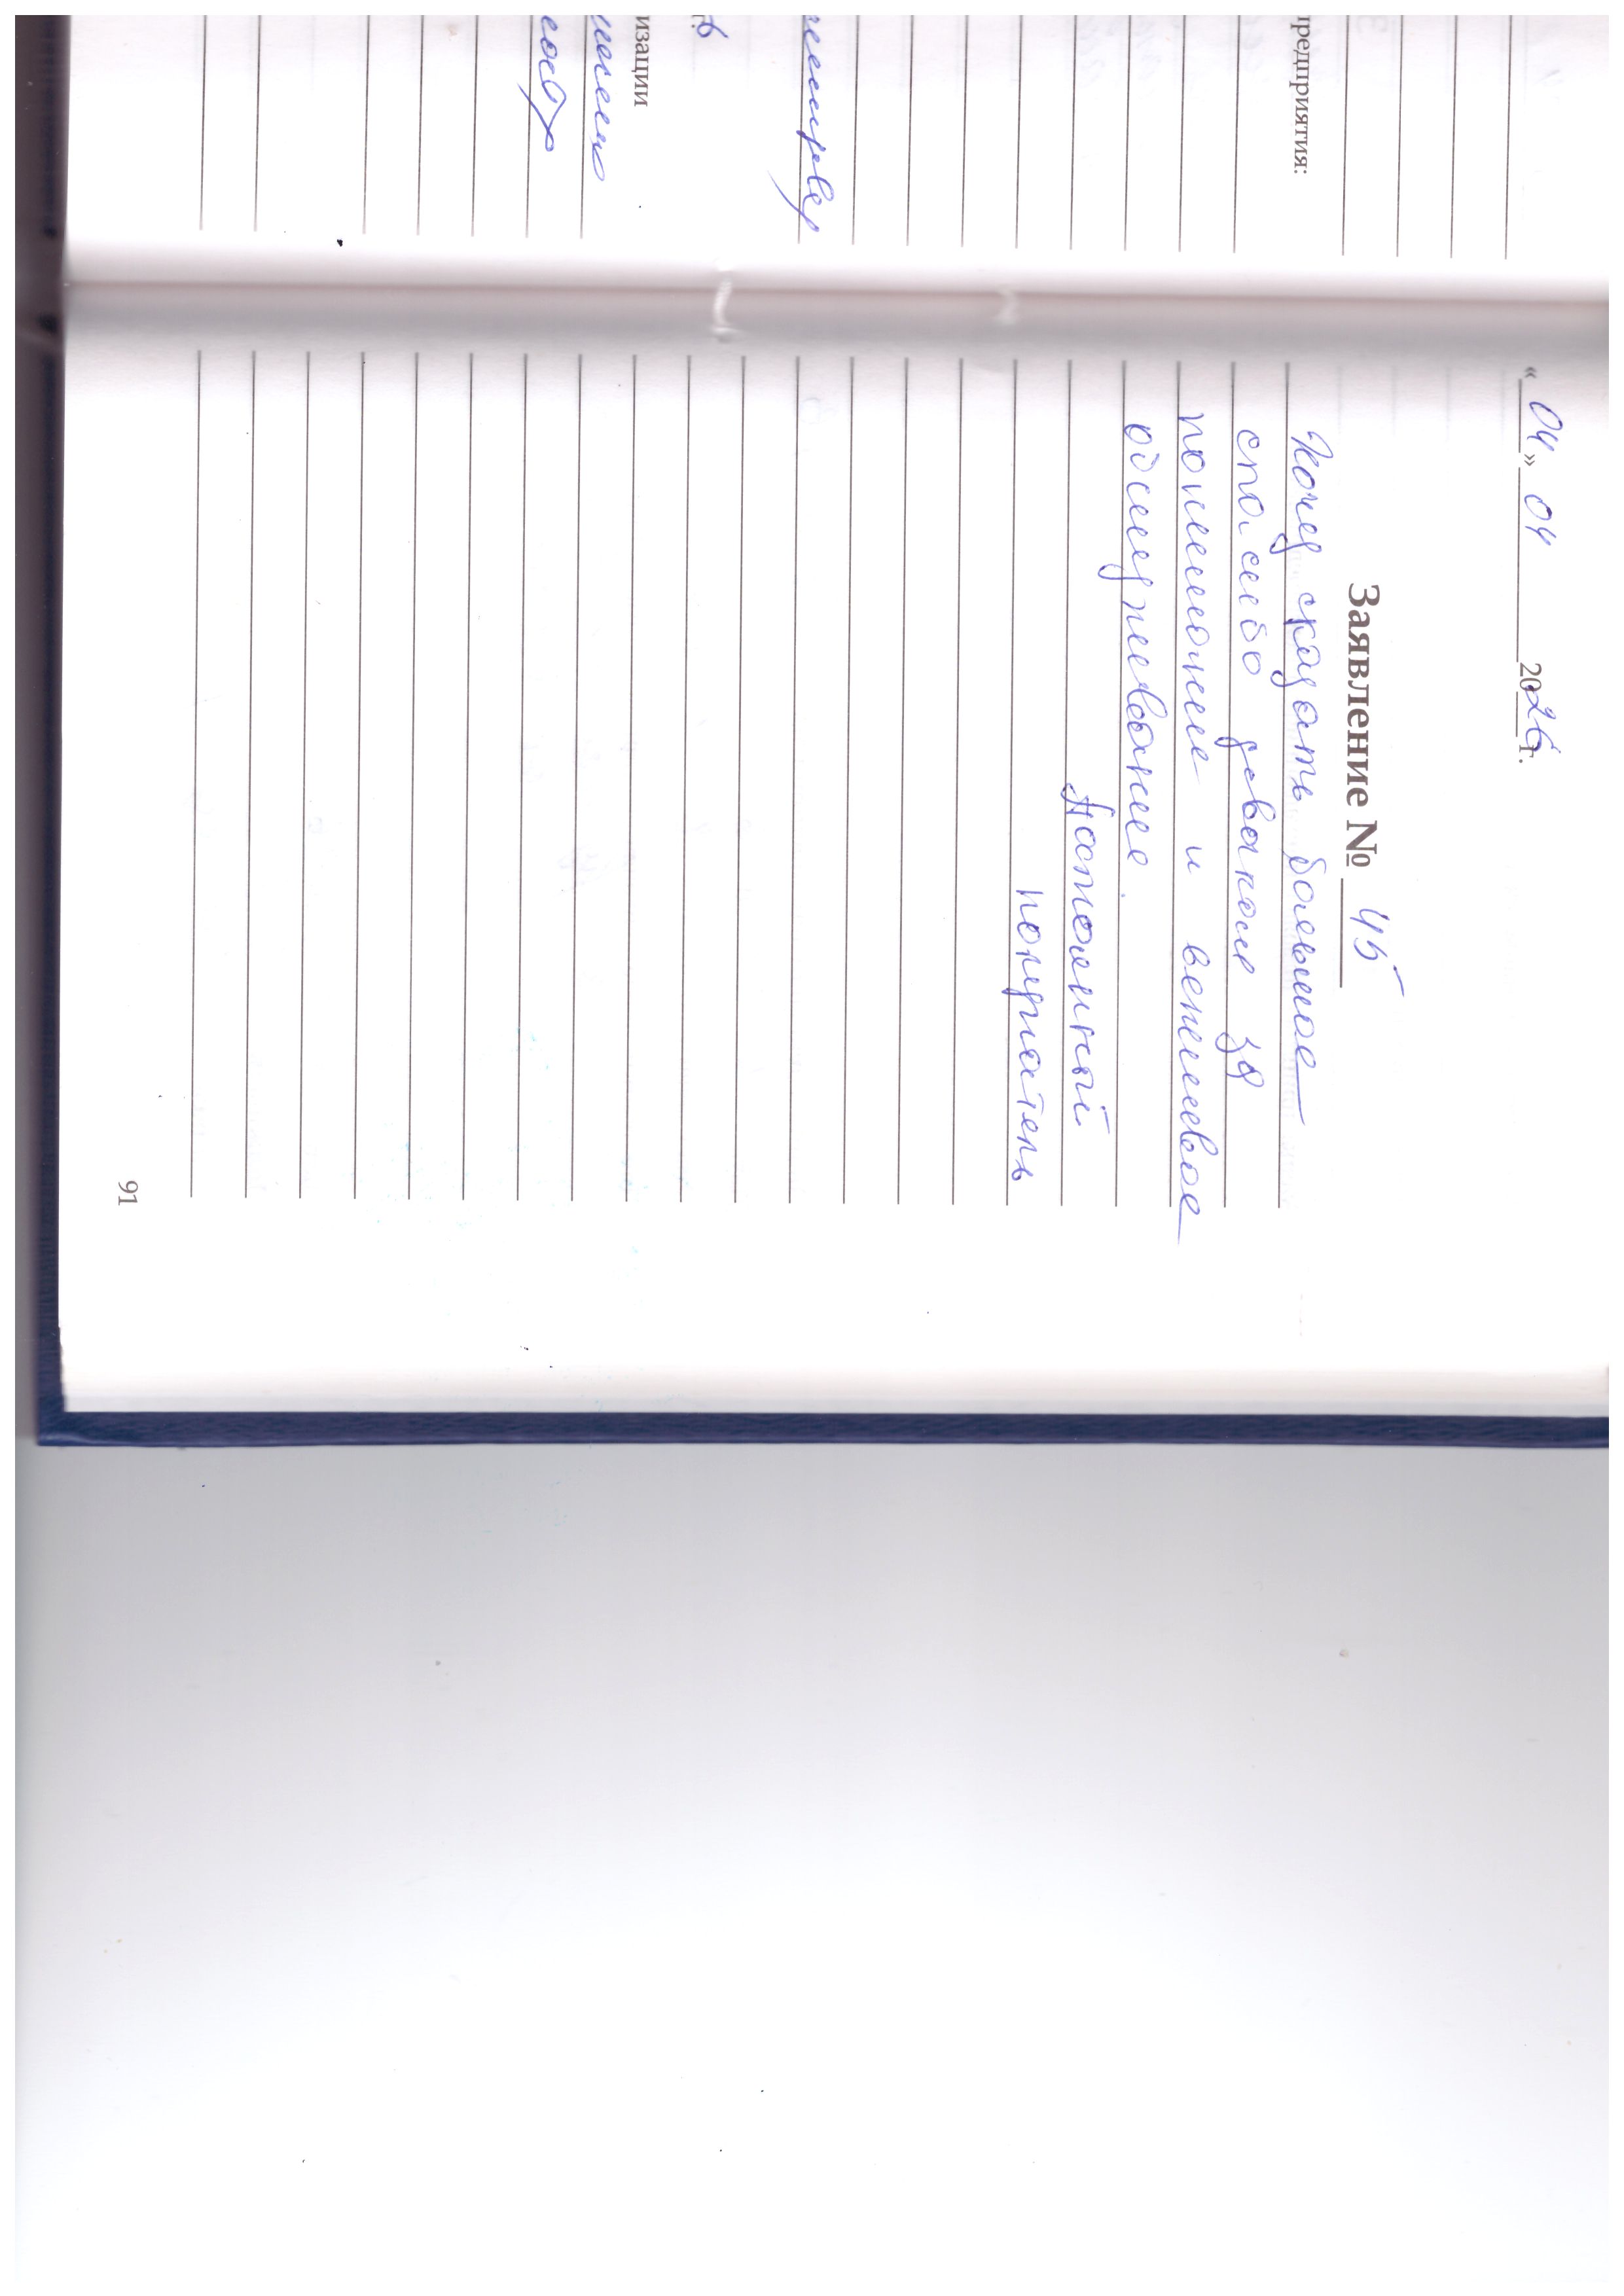 предприятия:
изации
« 04 » 04 2026 г.
Заявление № 45
Хочу сказать большое
спасибо девочкам за
понимание и вежливое
обслуживание.
Постоянный
покупатель
91